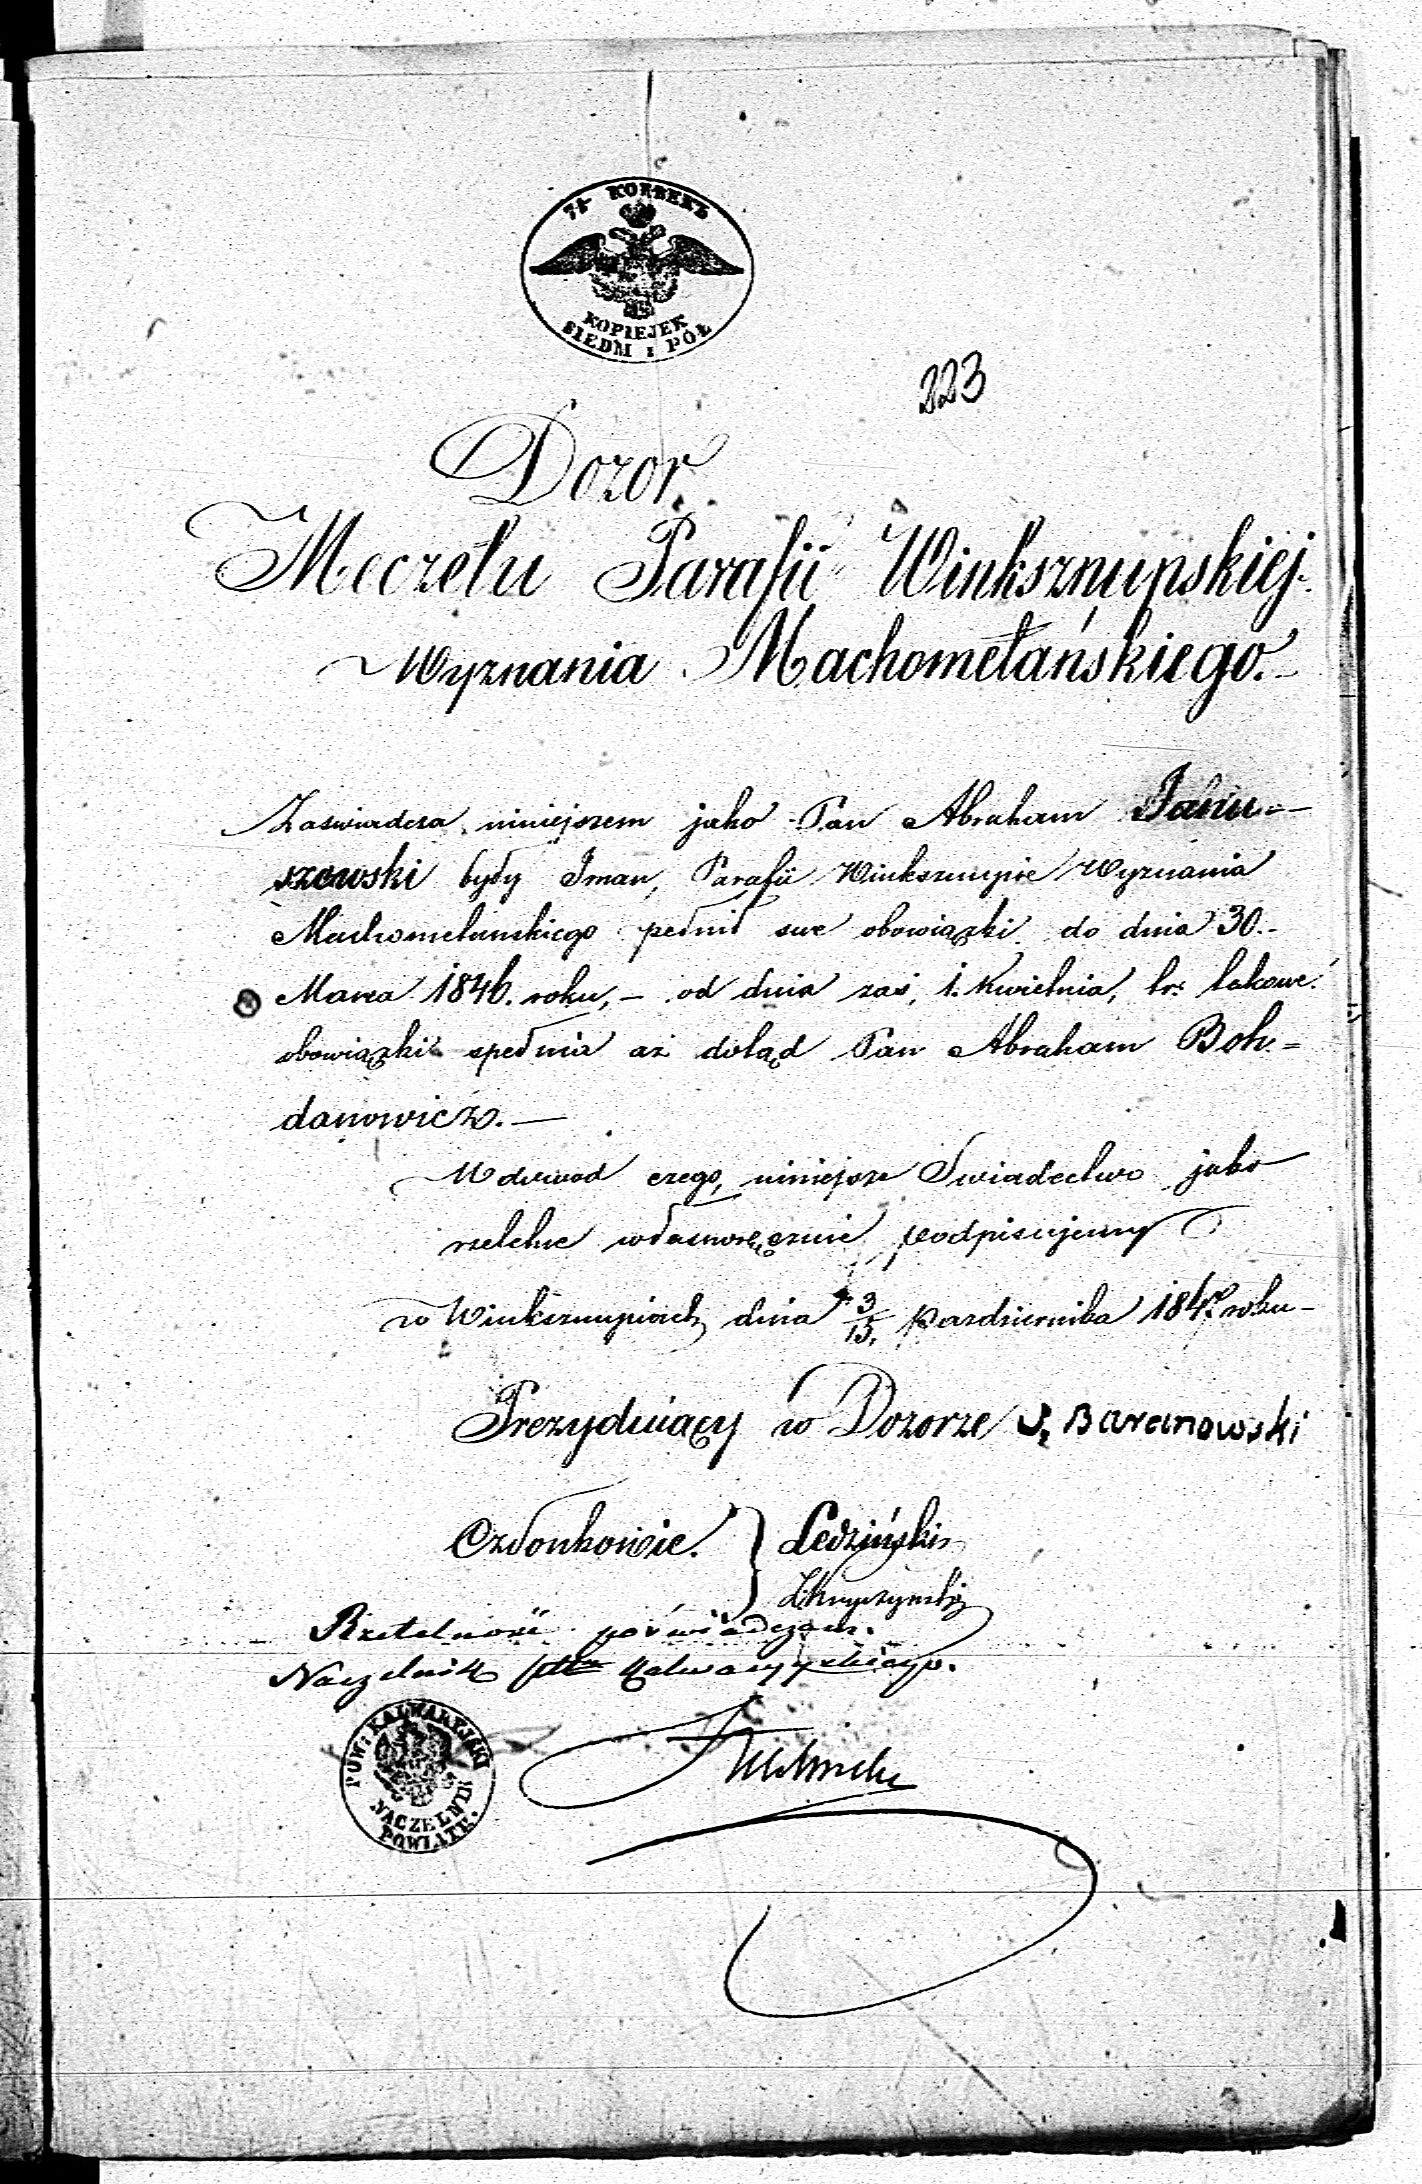 7½ КОПѢЕКЪ
KOPIEJEK
SIEDM i PÓŁ
223
Dozor
Meczetu Parafii Winksznupskiej
Wyznania Machometańskiego.
Zaswiadcza niniejszem jako Pan Abraham Janu=
szewski były Iman, Parafii Winksznupie Wyznania
Machometanskiego pełnił swe obowiązki do dnia 30.
Marca 1846. roku, – od dnia zaś, 1. Kwietnia, t.r. takowe
obowiązki spełnia aż dotąd Pan Abraham Boh=
danowicz. —
W dowod czego, niniejsze Swiadectwo jako
rzetelne własnoręcznie podpisujemy
w Winksznupiach dnia 3/15. Pazdziernika roku
Prezydujący w Dozorze Baranowski
Członkowie. Ledziński
Kryczyński
Rzetelność poświadczam.
Naczelnik Kalwaryyskiego.
POW: KALWARYJSKI
NACZELNIK
POWIATU.